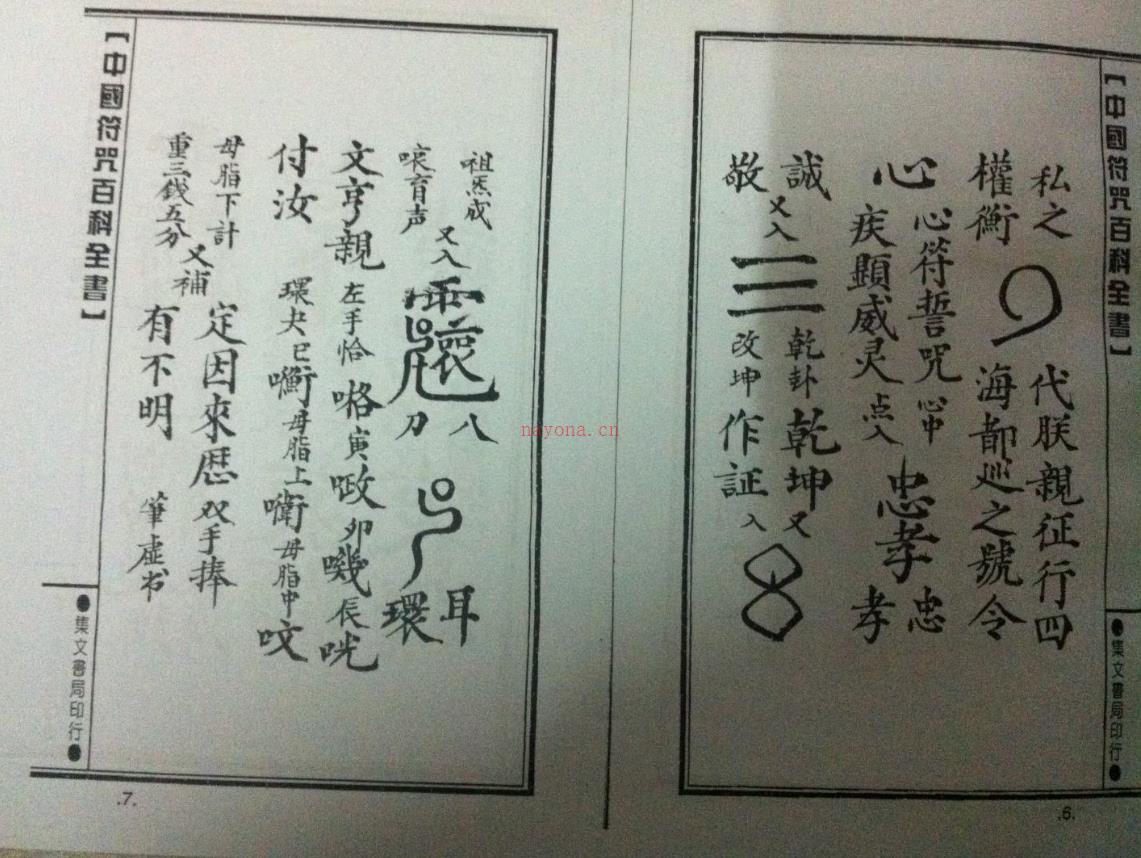 【中國符咒百科全書】
私之
權衡
代朕親征行四
海都巡之號令
心
心符誓咒
心中
疾顯威灵
点入
忠孝
忠
孝
誠
敬
又入
三
乾卦
改坤
乾坤
作証
又
入
●集文書局印行●
.6.
祖炁成
哀育声
又入
八
刀
耳
環
文亨親
左手恰
寅
卯
長
付汝
母脂上
母脂中
咬
母脂下計
重三錢五分
又補
定因來歷
有不明
双手捧
筆虛书
【中國符咒百科全書】
●集文書局印行●
.7.
nayona.cn